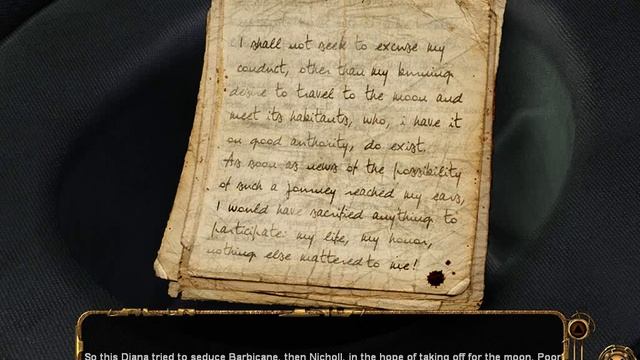 I shall not seek to excuse my
conduct, other than my burning
desire to travel to the moon and
meet its habitants, who, i have it
on good authority, do exist.
As soon as news of the possibility
of such a journey reached my ears,
I would have sacrified anything to
participate: my life, my honor,
nothing else mattered to me!
So this Diana tried to seduce Barbicane, then Nicholl, in the hope of taking off for the moon. Poor